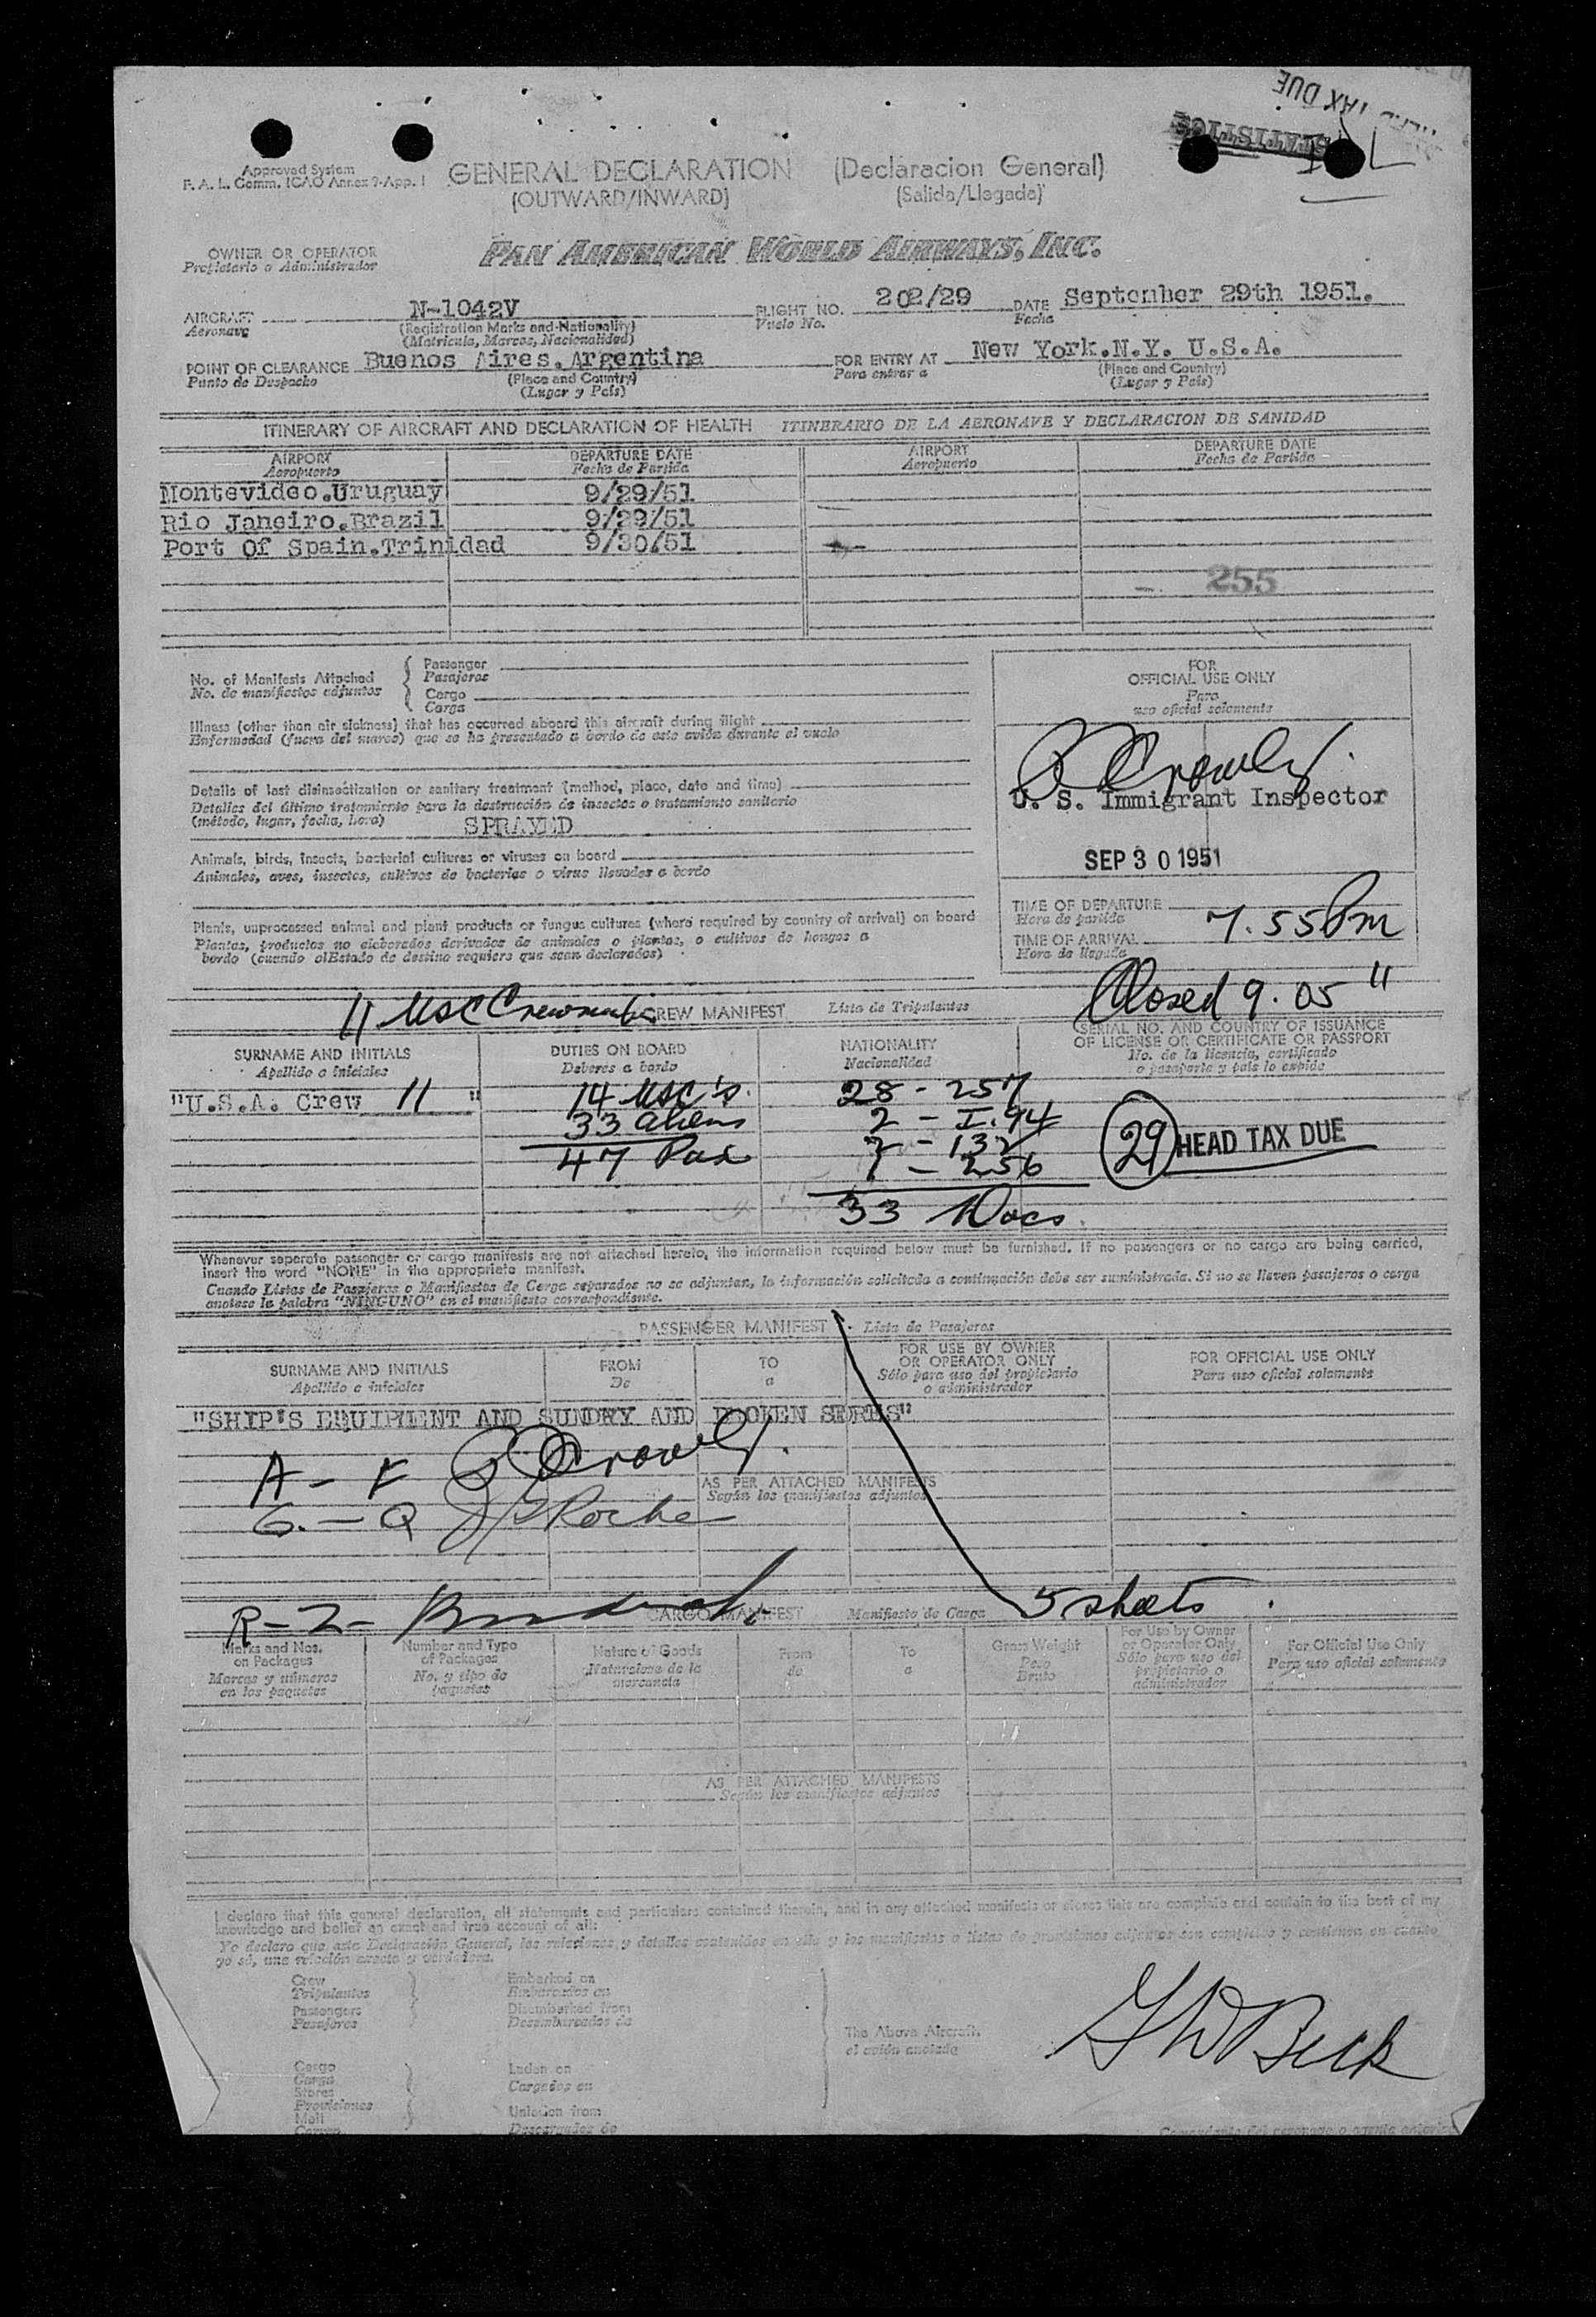 TAX DUE
STATISTICS
Approved System
F. A. L. Comm. ICAO Annex 9-App. 1
GENERAL DECLARATION (Declaracion General)
(OUTWARD/INWARD) (Salida/Llegada)
OWNER OR OPERATOR
Propietario o Administrador
PAN AMERICAN WORLD AIRWAYS, INC.
AIRCRAFT N-1042V FLIGHT NO. 202/29 DATE September 29th 1951.
Aeronave (Registration Marks and Nationality) Vuelo No. Fecha
(Matricula, Marcas, Nacionalidad)
POINT OF CLEARANCE Buenos Aires. Argentina FOR ENTRY AT New York.N.Y. U.S.A.
Punto de Despacho (Place and Country) Para entrar a (Place and Country)
(Lugar y País) (Lugar y País)
ITINERARY OF AIRCRAFT AND DECLARATION OF HEALTH ITINERARIO DE LA AERONAVE Y DECLARACION DE SANIDAD
AIRPORT DEPARTURE DATE AIRPORT DEPARTURE DATE
Aeropuerto Fecha de Partida Aeropuerto Fecha de Partida
Montevideo.Uruguay 9/29/51
Rio Janeiro.Brazil 9/29/51
Port Of Spain.Trinidad 9/30/51
255
No. of Manifests Attached
No. de manifiestos adjuntos
Passenger
Pasajeros
Cargo
Carga
FOR
OFFICIAL USE ONLY
Para
uso oficial solamente
Illness (other than air sickness) that has occurred aboard this aircraft during flight
Enfermedad (fuera del mareo) que se ha presentado a bordo de este avión durante el vuelo
Crowley
U. S. Immigrant Inspector
Details of last disinsectization or sanitary treatment (method, place, date and time)
Detalles del último tratamiento para la destrucción de insectos o tratamiento sanitario
(método, lugar, fecha, hora) SPRAYED
SEP 30 1951
Animals, birds, insects, bacterial cultures or viruses on board
Animales, aves, insectos, cultivos de bacterias o virus llevados a bordo
TIME OF DEPARTURE
Hora de partida
TIME OF ARRIVAL 7.55 Pm
Hora de llegada
Plants, unprocessed animal and plant products or fungus cultures (where required by country of arrival) on board
Plantas, productos no elaborados derivados de animales o plantas, o cultivos de hongos a
bordo (cuando el Estado de destino requiera que sean declarados)
Closed 9.05 "
11 USC Crewmembers CREW MANIFEST Lista de Tripulantes
SURNAME AND INITIALS DUTIES ON BOARD NATIONALITY SERIAL NO. AND COUNTRY OF ISSUANCE
OF LICENSE OR CERTIFICATE OR PASSPORT
Apellido o iniciales Deberes a bordo Nacionalidad No. de la licencia, certificado
o pasaporte y país lo expide
"U.S.A. Crew 11 " 14 USC's. 28 - 257
33 aliens 2 - I.94
47 Pax 2 - 132
1 - 256
33 Docs.
29 HEAD TAX DUE
Whenever separate passenger or cargo manifests are not attached hereto, the information required below must be furnished. If no passengers or no cargo are being carried,
insert the word "NONE" in the appropriate manifest.
Cuando Listas de Pasajeros o Manifiestos de Carga separados no se adjuntan, la información solicitada a continuación debe ser suministrada. Si no se lleven pasajeros o carga
anotese la palabra "NINGUNO" en el manifiesto correspondiente.
PASSENGER MANIFEST - Lista de Pasajeros
SURNAME AND INITIALS FROM TO FOR USE BY OWNER
OR OPERATOR ONLY FOR OFFICIAL USE ONLY
Apellido e iniciales De a Sólo para uso del propietario
o administrador Para uso oficial solamente
"SHIP'S EQUIPMENT AND SUNDRY AND BROKEN STORES"
A - F Crowley.
AS PER ATTACHED MANIFESTS
Según los manifiestos adjuntos
G. - Q Roche
R - Z - 5 sheets
CARGO MANIFEST Manifiesto de Carga
Marks and Nos.
on Packages
Marcas y números
en los paquetes
Number and Type
of Packages
No. y tipo de
paquetes
Nature of Goods
Naturaleza de la
mercancía
From
de
To
a
Gross Weight
Peso
Bruto
For Use by Owner
or Operator Only
Sólo para uso del
propietario o
administrador
For Official Use Only
Para uso oficial solamente
AS PER ATTACHED MANIFESTS
Según los manifiestos adjuntos
I declare that this general declaration, all statements and particulars contained therein, and in any attached manifests or stores lists are complete and contain to the best of my
knowledge and belief an exact and true account of all:
Yo declaro que esta Declaración General, las relaciones y detalles contenidos en ella y los manifiestos o listas de provisiones adjuntos son completos y contienen en cuanto
yo sé, una relación exacta y verdadera.
Crew Embarked on
Tripulantes Embarcados en
Passengers Disembarked from
Pasajeros Desembarcados de
The Above Aircraft.
el avión anotado
G W Beck
Cargo Laden on
Carga Cargados en
Stores
Provisiones
Mail Unladen from
Correo Descargados de